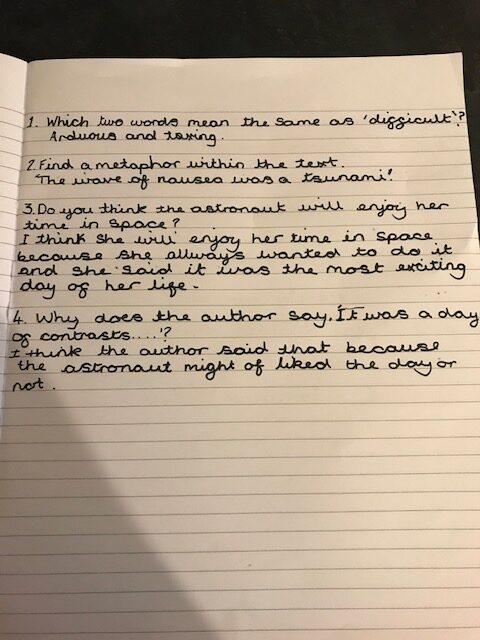 1. Which two words mean the same as 'difficult'?
Arduous and taxing.
2. Find a metaphor within the text.
'The wave of nausea was a tsunami!'
3. Do you think the astronaut will enjoy her
time in space?
I think she will enjoy her time in space
because she allways wanted to do it
and she said it was the most exciting
day of her life.
4. Why does the author say, 'It was a day
of contrasts....'?
I think the author said that because
the astronaut might of liked the day or
not.